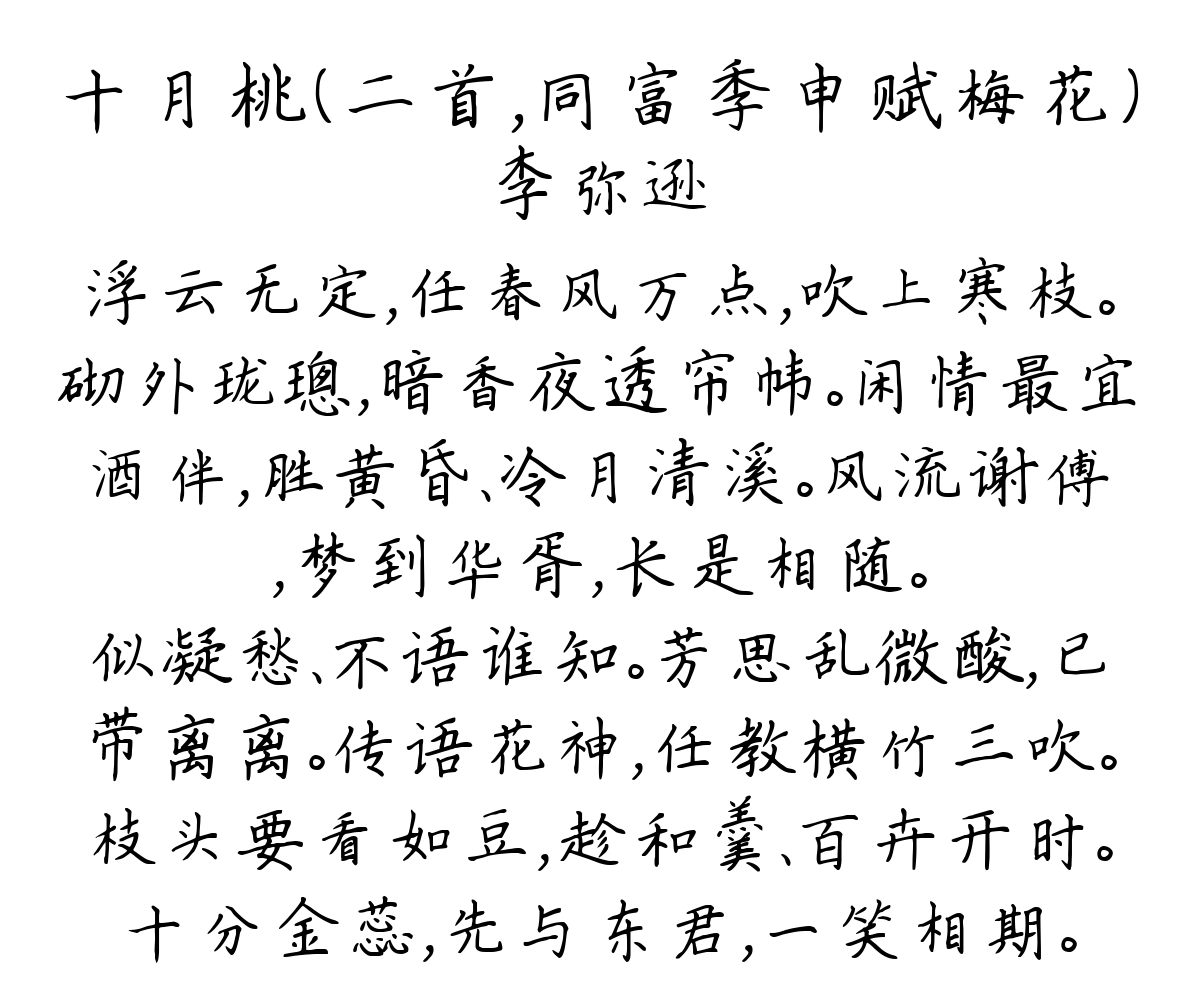 十月桃(二首,同富季申赋梅花)
李弥逊
浮云无定,任春风万点,吹上寒枝。
砌外珑璁,暗香夜透帘帏。闲情最宜
酒伴,胜黄昏、冷月清溪。风流谢傅
,梦到华胥,长是相随。
似凝愁、不语谁知。芳思乱微酸,已
带离离。传语花神,任教横竹三吹。
枝头要看如豆,趁和羹、百卉开时。
十分金蕊,先与东君,一笑相期。